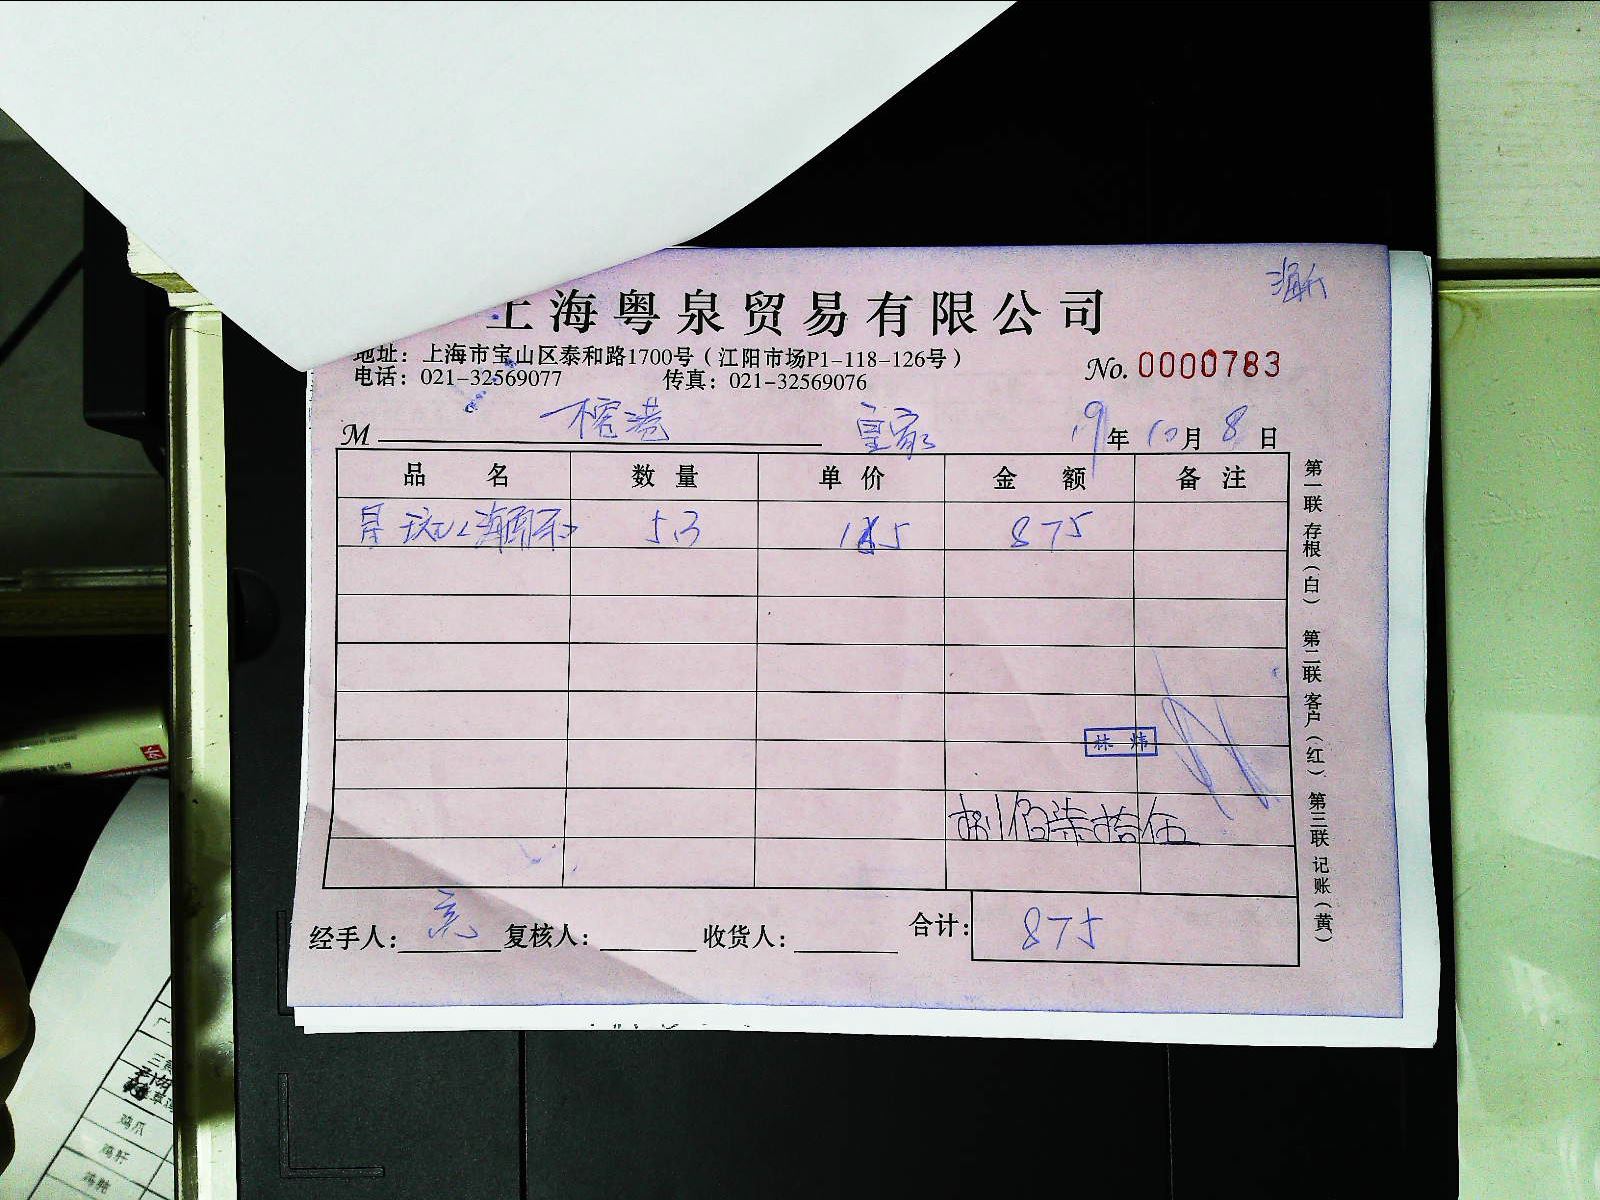 上海粤泉贸易有限公司
地址：上海市宝山区泰和路1700号（江阳市场P1-118-126号）
电话：021-32569077 传真：021-32569076
No. 0000783
M 榕港 皇家 19年10月8日
品名 数量 单价 金额 备注
星斑 5.3 165 875
林炜
捌佰柒拾伍
经手人：亮 复核人： 收货人： 合计：875
第一联 存根（白） 第二联 客户（红） 第三联 记账（黄）
鸡爪
鸡肝